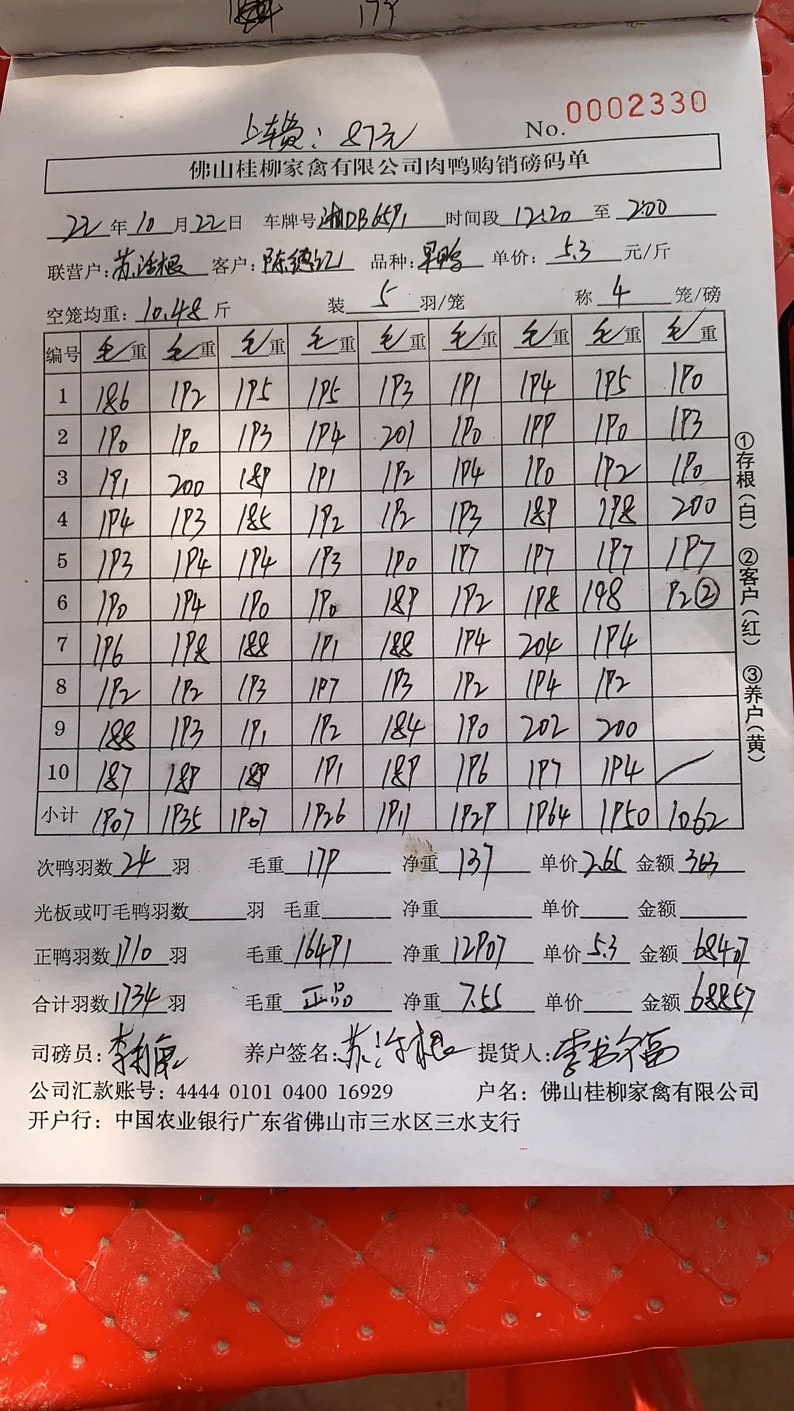 上车费：87元
No. 0002330
佛山桂柳家禽有限公司肉鸭购销磅码单
22年10月22日 车牌号湘DB65P1 时间段12:20至2:00
联营户：苏活根 客户：陈德记 品种：旱鸭 单价：5.3元/斤
空笼均重：10.48斤 装5羽/笼 称4笼/磅
编号 毛重 毛重 毛重 毛重 毛重 毛重 毛重 毛重 毛重
1 186 192 195 195 193 191 194 195 190
2 190 190 193 194 201 190 199 190 193
3 191 200 189 191 192 194 190 192 190
4 194 193 185 192 192 193 189 198 200
5 193 194 194 193 190 197 197 197 197
6 190 194 190 190 189 192 198 198 92②
7 196 198 188 191 188 194 204 194
8 192 192 193 197 193 192 194 192
9 188 193 191 192 184 190 202 200
10 187 189 189 191 189 196 197 194
小计 1907 1935 1907 1926 1911 1929 1964 1950 1062
①存根（白） ②客户（红） ③养户（黄）
次鸭羽数24羽 毛重179 净重137 单价2.65 金额363
光板或叮毛鸭羽数 羽 毛重 净重 单价 金额
正鸭羽数1710羽 毛重16491 净重12907 单价5.3 金额68407
合计羽数1734羽 毛重正品 净重7.55 单价 金额68857
司磅员： 养户签名：苏活根 提货人：
公司汇款账号：4444 0101 0400 16929 户名：佛山桂柳家禽有限公司
开户行：中国农业银行广东省佛山市三水区三水支行